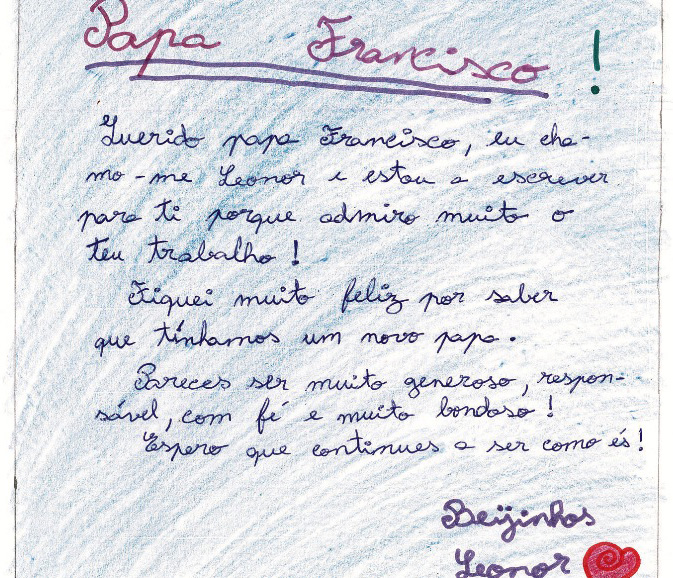 Papa Francisco!
Querido papa Francisco, eu cha-
mo-me Leonor e estou a escrever
para ti porque admiro muito o
teu trabalho!
Fiquei muito feliz por saber
que tínhamos um novo papa.
Pareces ser muito generoso, respon-
sável, com fé e muito bondoso!
Espero que continues a ser como és!
Beijinhos
Leonor